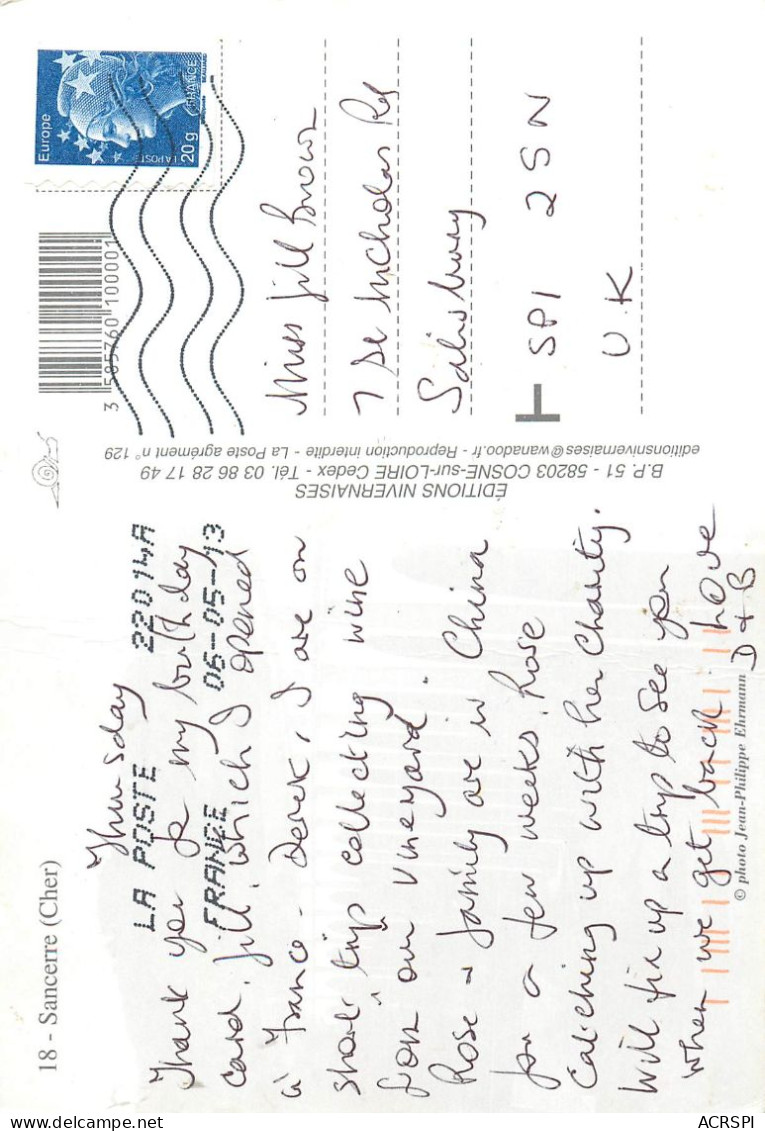 18 - Sancerre (Cher)
Thursday
LA POSTE 22014A
FRANCE 06-05-13
Thank you for my birthday
card, Jill, which I opened
in France - Derek, I are on
short trip collecting wine
from our Vineyard.
Rose & family are in China
for a few weeks, Rose
Catching up with her Charity.
Will fix up a trip to see you
when we get back. love
D + B
© photo Jean-Philippe Ehrmann
ÉDITIONS NIVERNAISES
B.P. 51 - 58203 COSNE-sur-LOIRE Cedex - Tél. 03 86 28 17 49
editionsnivernaises@wanadoo.fr - Reproduction interdite - La Poste agrément n° 129
3 585760 100001
Europe
LA POSTE
20g
FRANCE
Miss Jill Brown
7 De Nicholas Rd
Salisbury
SP1 2SN
U.K
ACRSPI